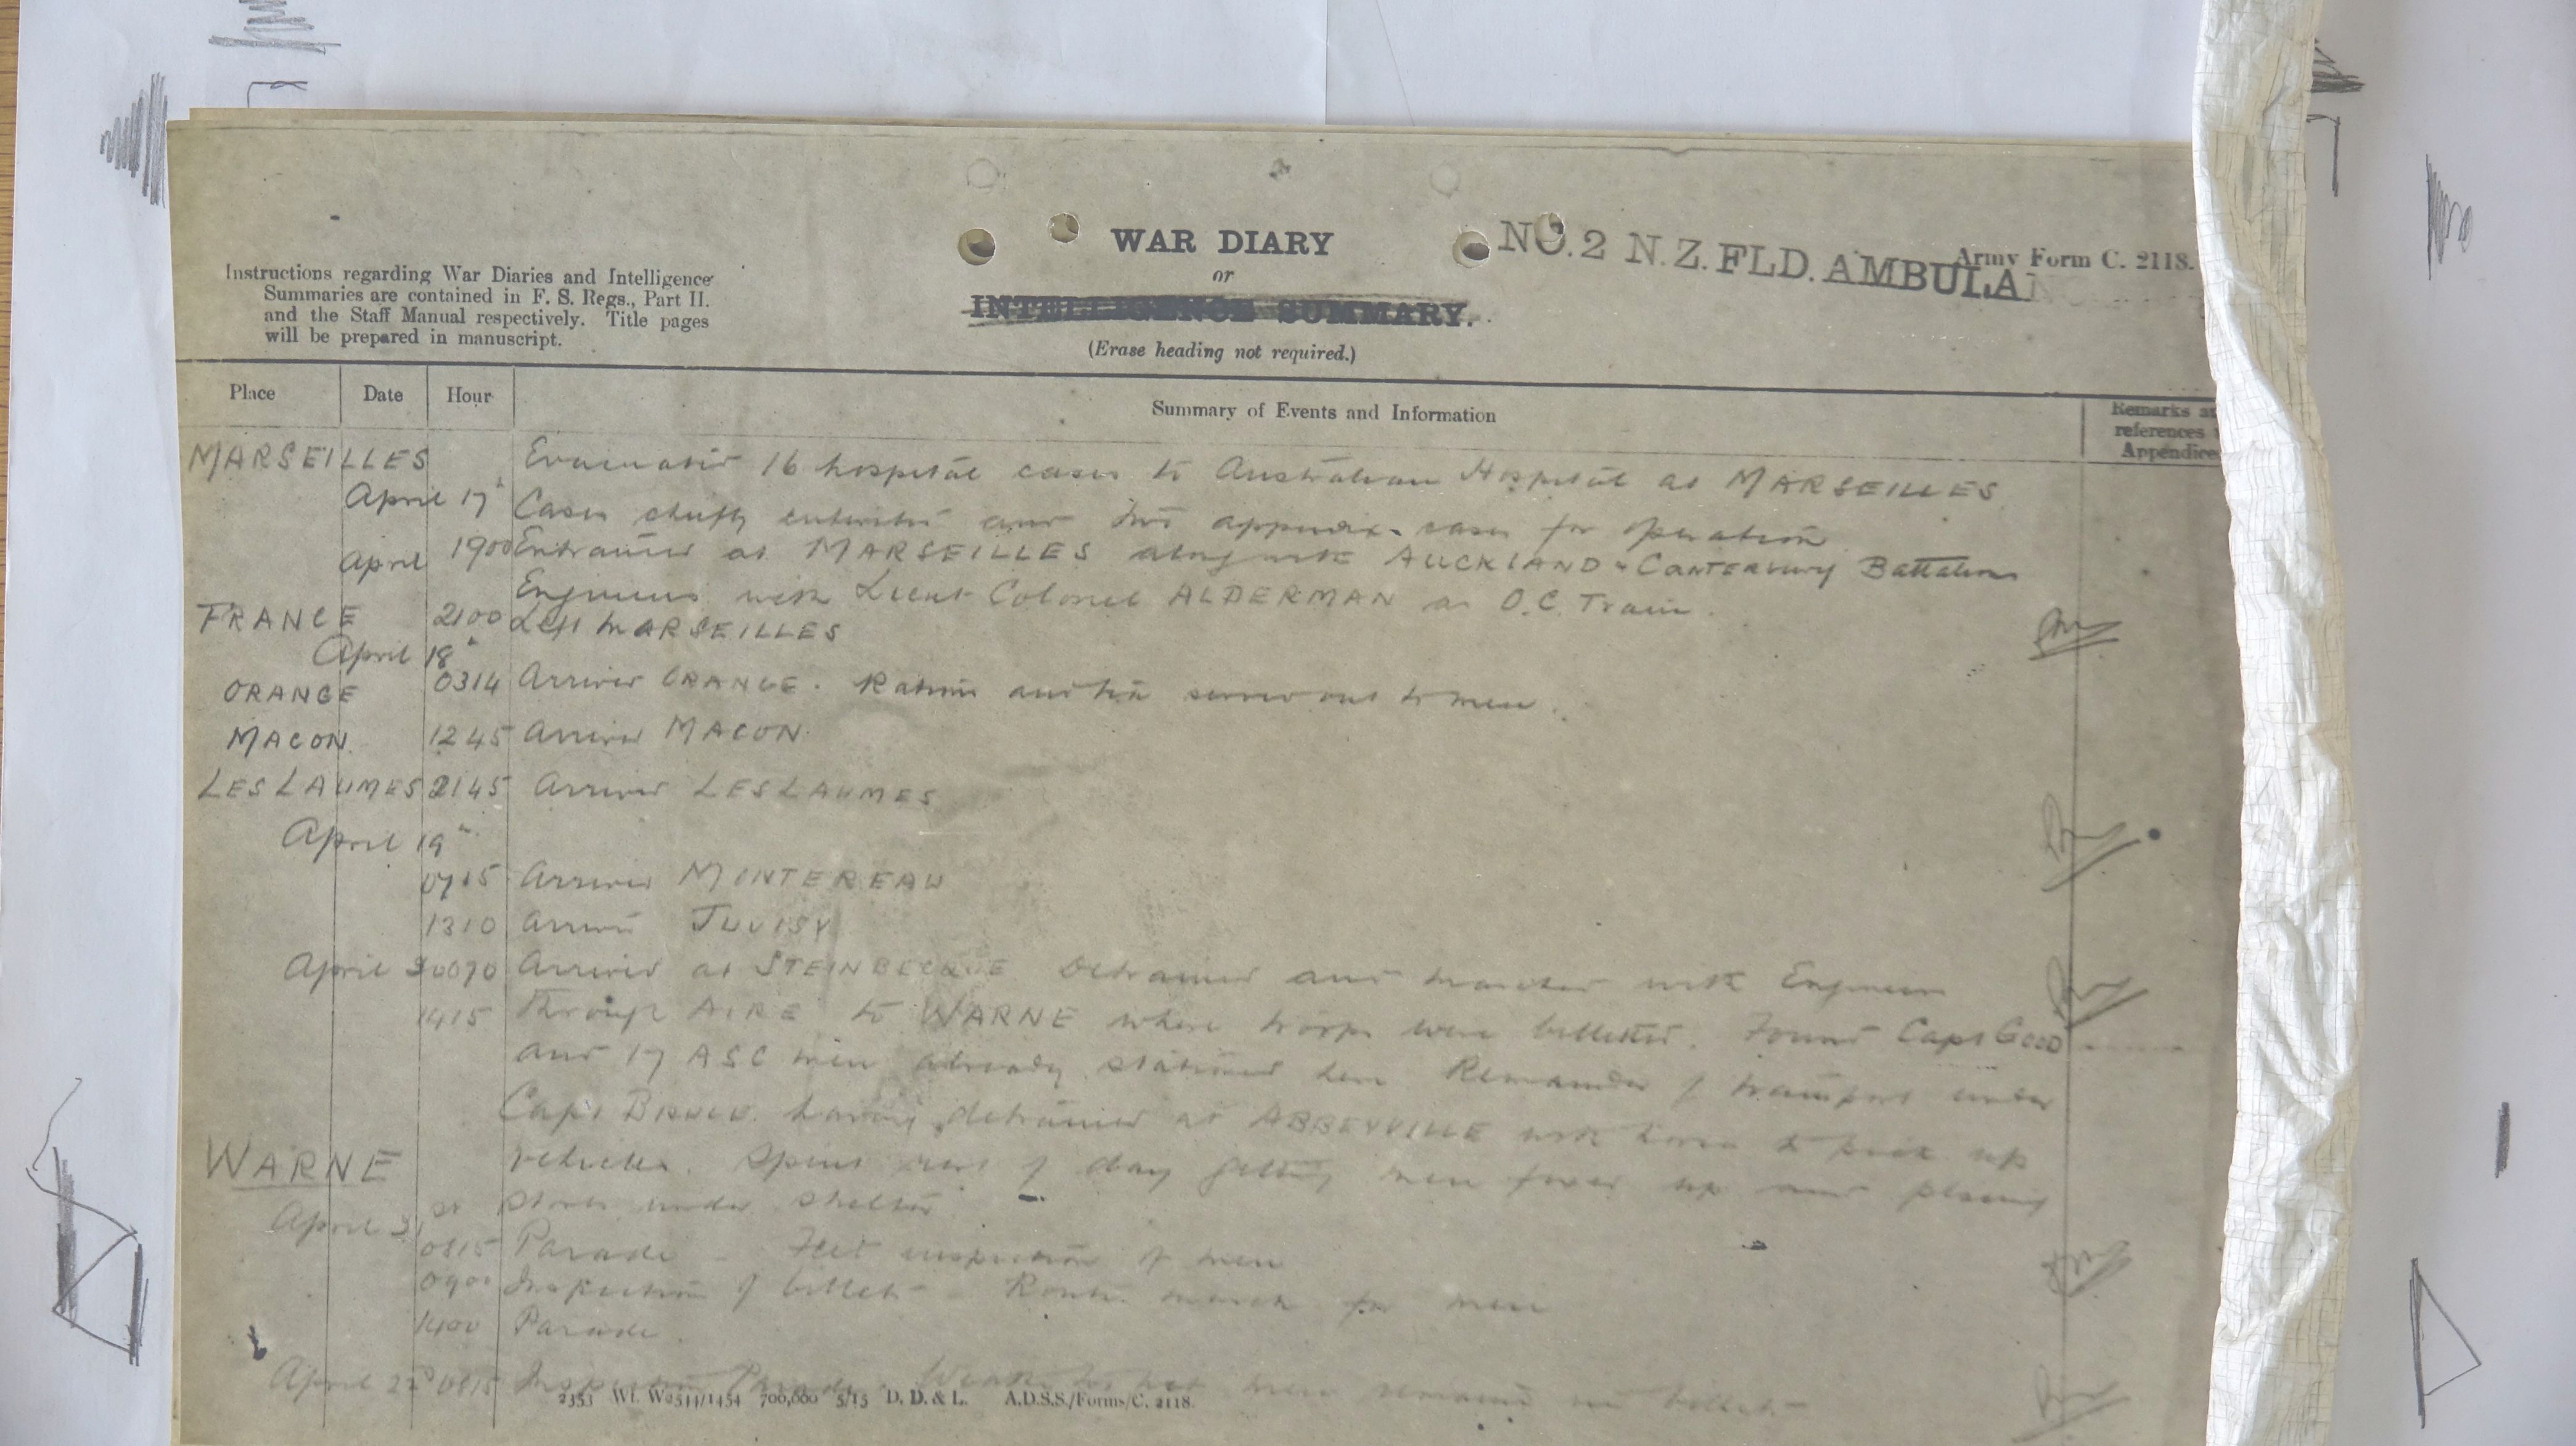 WAR DIARY
or
INTELLIGENCE SUMMARY.
(Erase heading not required.)
NO. 2 N.Z. FLD. AMBULAN
Army Form C. 2118.
Instructions regarding War Diaries and Intelligence
Summaries are contained in F. S. Regs., Part II.
and the Staff Manual respectively. Title pages
will be prepared in manuscript.
Place Date Hour Summary of Events and Information Remarks a
references
Appendice
MARSEILLES Evacuated 16 hospital cases to Australian Hospital at MARSEILLES
April 17 Cases chiefly enteritis and two appendix cases for operation
April 1900 Entrained at MARSEILLES along with AUCKLAND & CANTERBURY Battalions
Engineers with Lieut Colonel ALDERMAN as O.C. Train.
FRANCE 2100 Left MARSEILLES
April 18
ORANGE 0314 Arrived ORANGE. Rations and tea served out to men.
MACON. 1245 Arrived MACON
LES LAUMES 2145 Arrived LES LAUMES
April 19
0715 Arrived MONTEREAU
1310 Arrived JUVISY
April Arrived at STEINBECQUE Detrained and marched with Engineers
1415 through AIRE to WARNE where troops were billetted. Found Capt GOOD
and 17 ASC men already stationed here Remainder of transport under
Capt having detrained at ABBEYVILLE with horses to pick up
WARNE vehicles. Spent rest of day getting men fixed up and placing
stores under shelter
April
0815 Parade - Feet inspection of men
0900 Inspection of billets - Route march for men
1400 Parade.
April 22 0815 Inspection Parade. men remained in billets
2353 Wt. W2511/1454 700,000 5/15 D. D. & L. A.D.S.S./Forms/C. 2118.